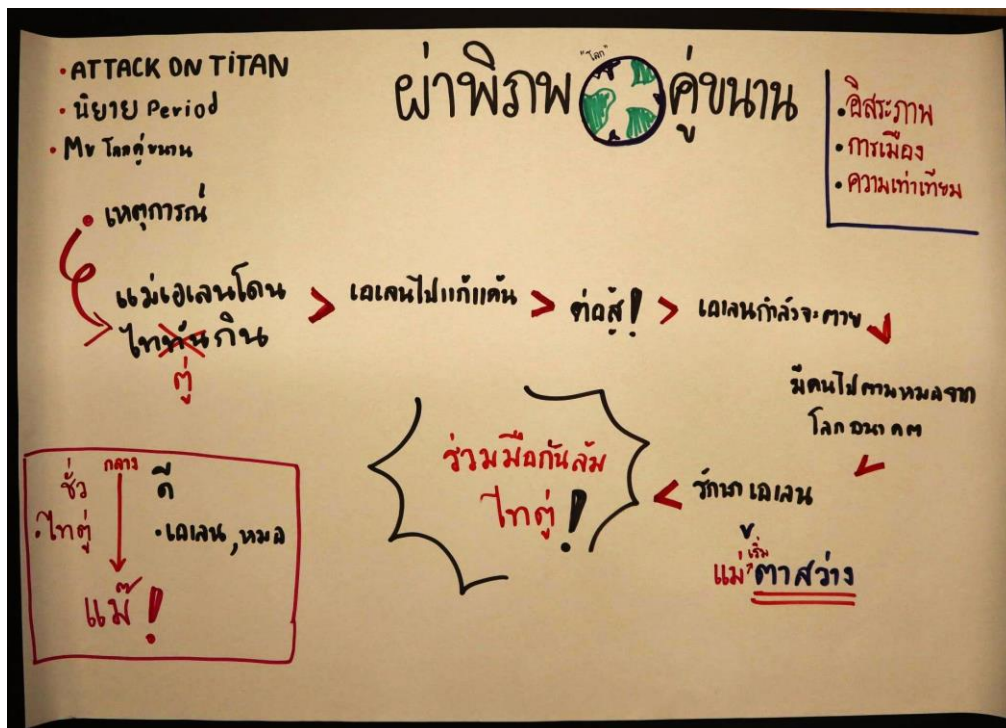 • ATTACK ON TiTAN
• นิยาย Period
• MV โลกคู่ขนาน
ผ่าพิภพ "โลก" คู่ขนาน
• อิสระภาพ
• การเมือง
• ความเท่าเทียม
• เหตุการณ์
แม่เอเลนโดน
ไททันกิน
ตู่
> เอเลนไปแก้แค้น > ต่อสู้! > เอเลนกำลังจะตาย
มีคนไปตามหมอจาก
โลกอนาคต
รักษาเอเลน
แม่เริ่มตาสว่าง
ร่วมมือกันล้ม
ไทตู่!
ชั่ว กลาง ดี
• ไทตู่ • เอเลน, หมอ
แม่!